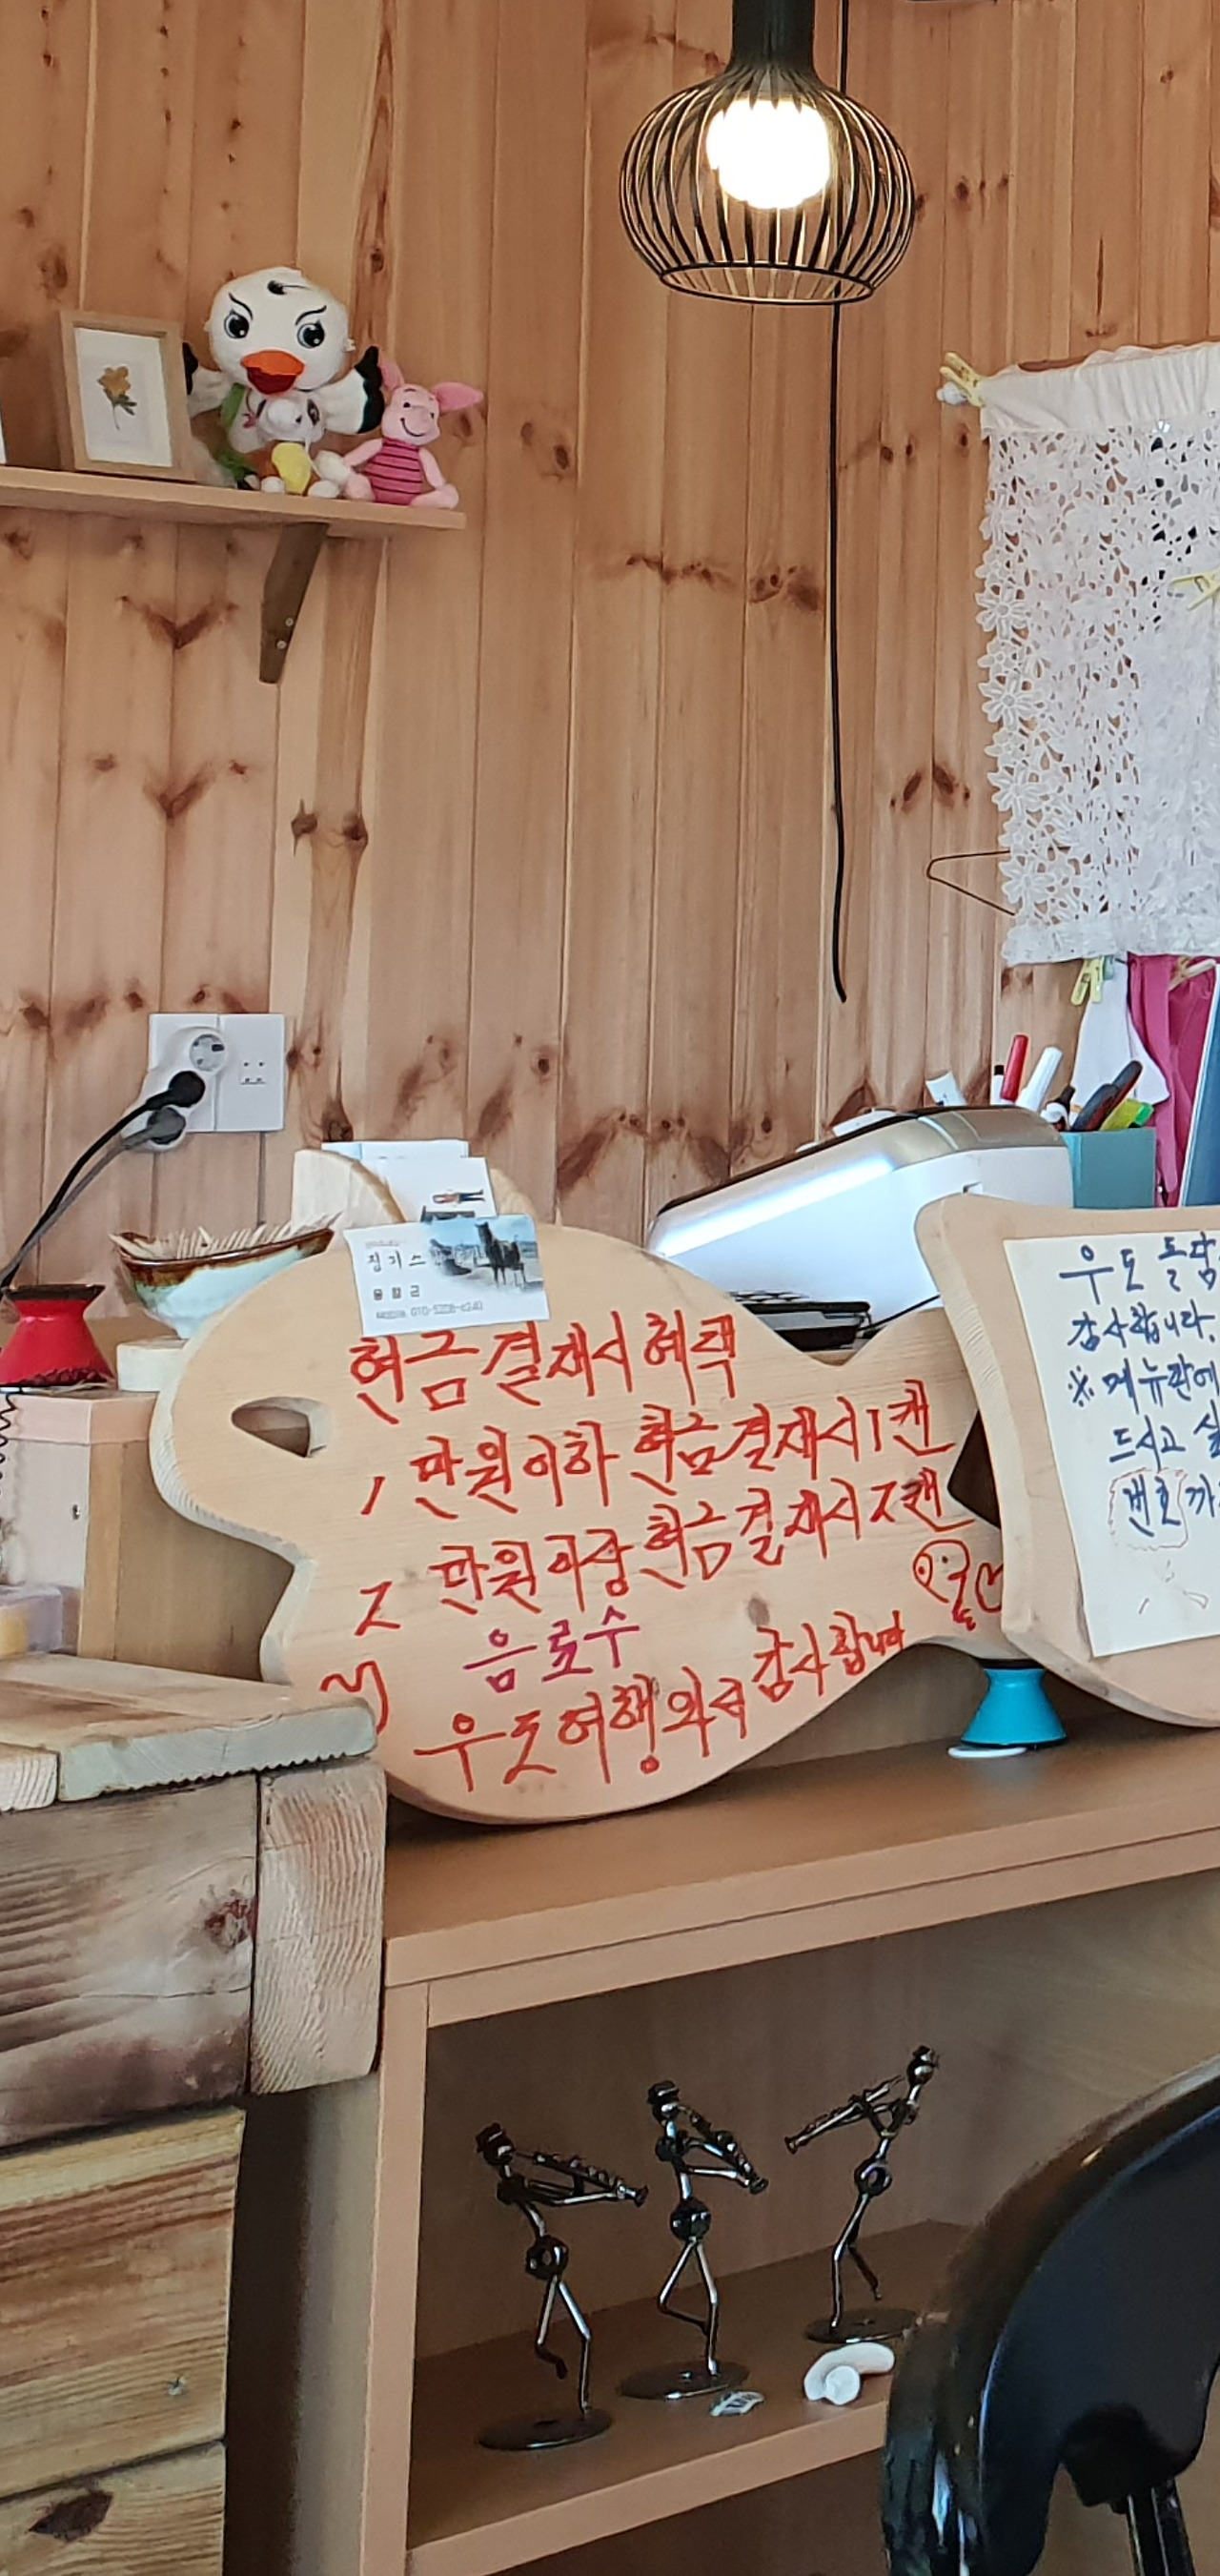 징기스
현금결재시혜택
1 만원이하 현금결재시1캔
2 만원이상 현금결재시 2캔
음료수
우도여행와주 감사합니다
우도 돌담
감사합니다.
※메뉴판에
드시고
번호까